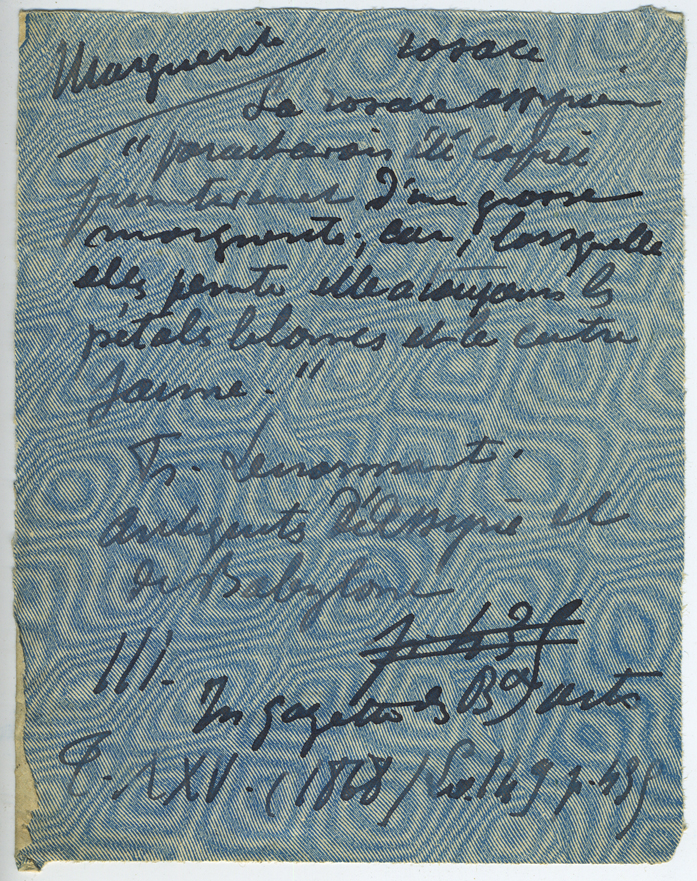 Marguerite rosace
La rosace assyrien
" paraît avoir été copiée
primitivement d'une grosse
marguerite; car, lorsqu'elle
elle peinte elle a toujours les
pétales blancs et le centre
jaune. "
Fr. Lenormant.
antiquités d'Assyrie et
de Babylone
p. 439
III.
In gazette des Bx arts
T. XXV. (1868) Liv. 149 p. 439